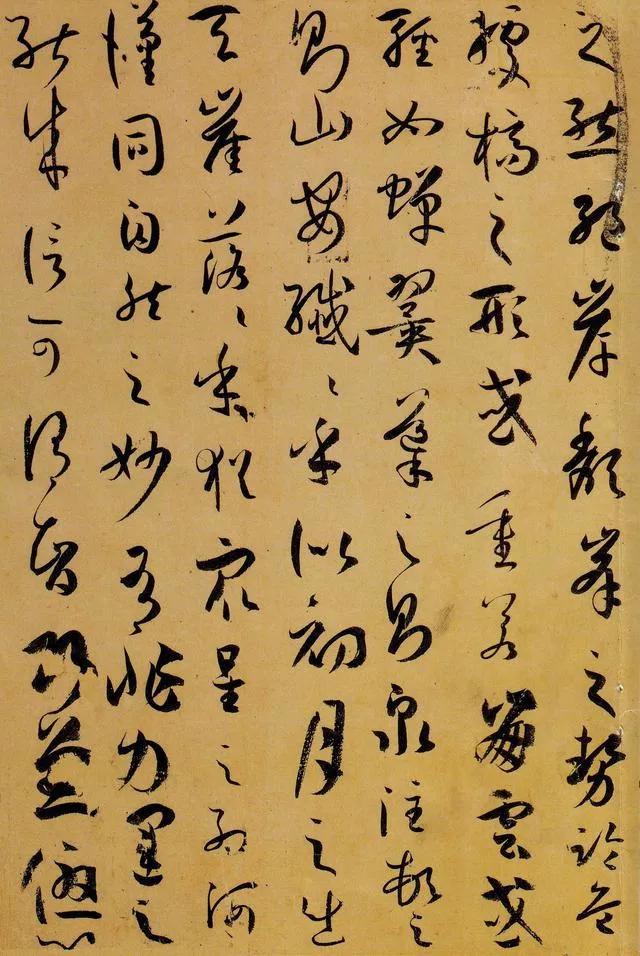 之態絕岸頹峯之勢臨危
據槁之形或重若崩雲或
輕如蟬翼導之則泉注頓之
則山安纖〻乎似初月之出
天崖落〻乎猶眾星之列河
漢同自然之妙有非力運之
能成信可謂智巧兼優心